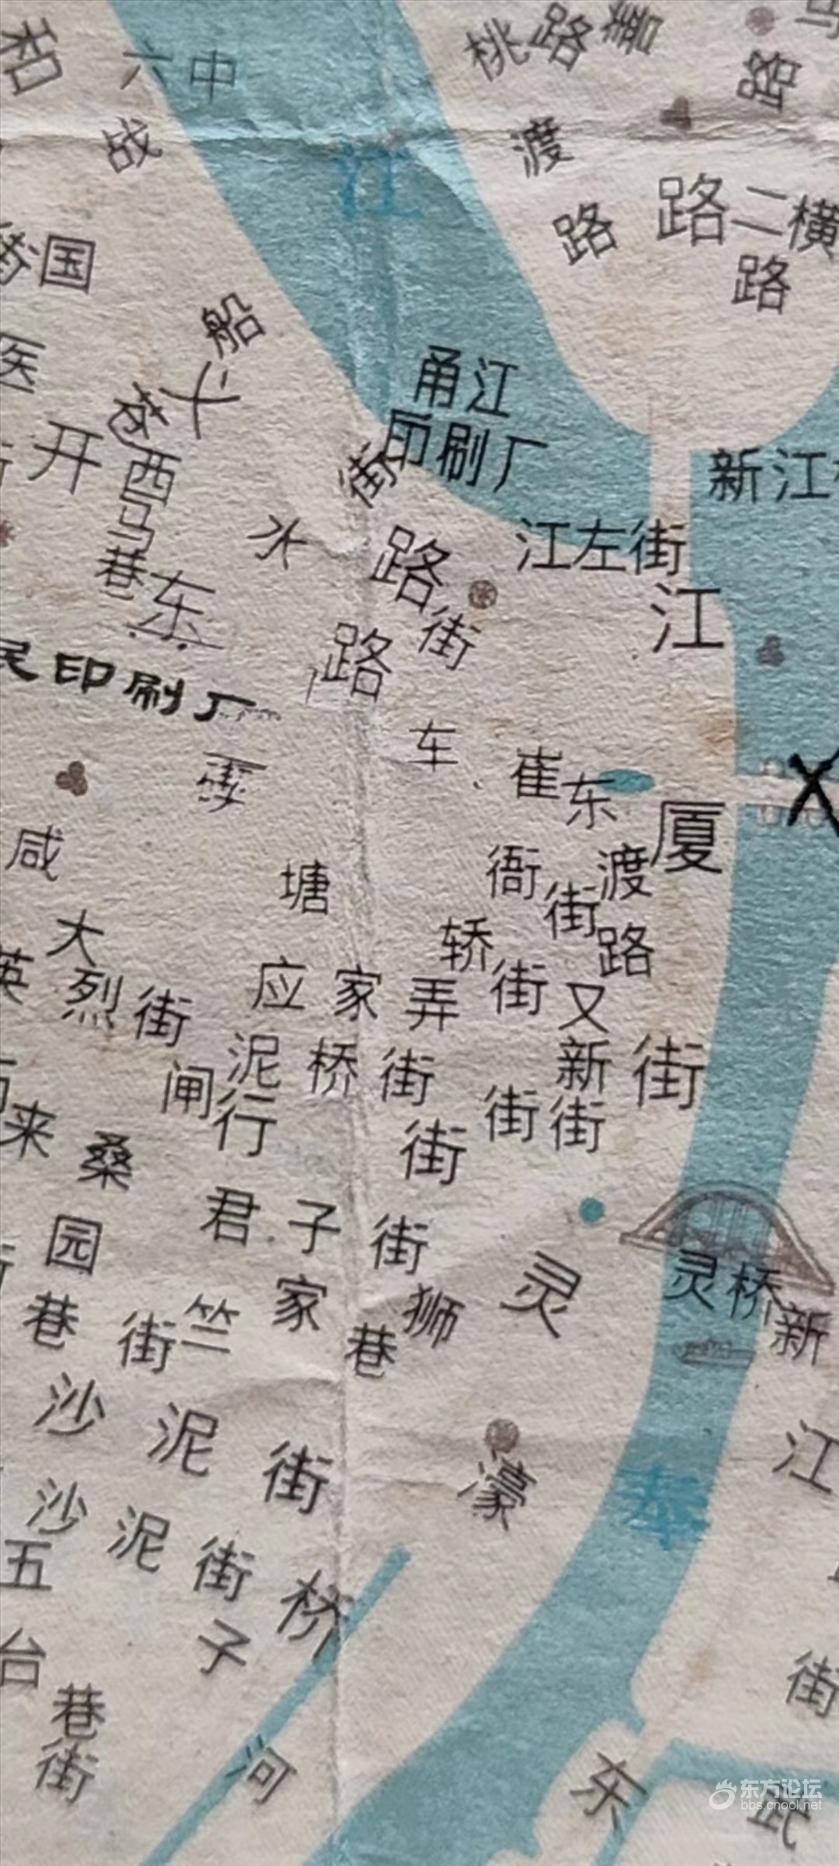 和
六中
桃 路 善
路
战
渡
江
路
路 二横
国
路
船
医
甬江
巷
开
街 印刷厂
西
新江
马
水
江左街
巷
路
东
街
江
路
民印刷厂
车
崔
东
厦
咸
塘
衙
渡
街
大
轿
路
英烈街
应家弄
街
又
泥桥街
新
街
闸
行
街
街
街
来
桑
君子街
园
灵
灵桥
新
巷
街
竺
家
巷
狮
沙泥街
江
濠
奉
沙泥街
五
桥
台
子
街
巷
街
河
东
武
东方论坛
bbs.cnool.net